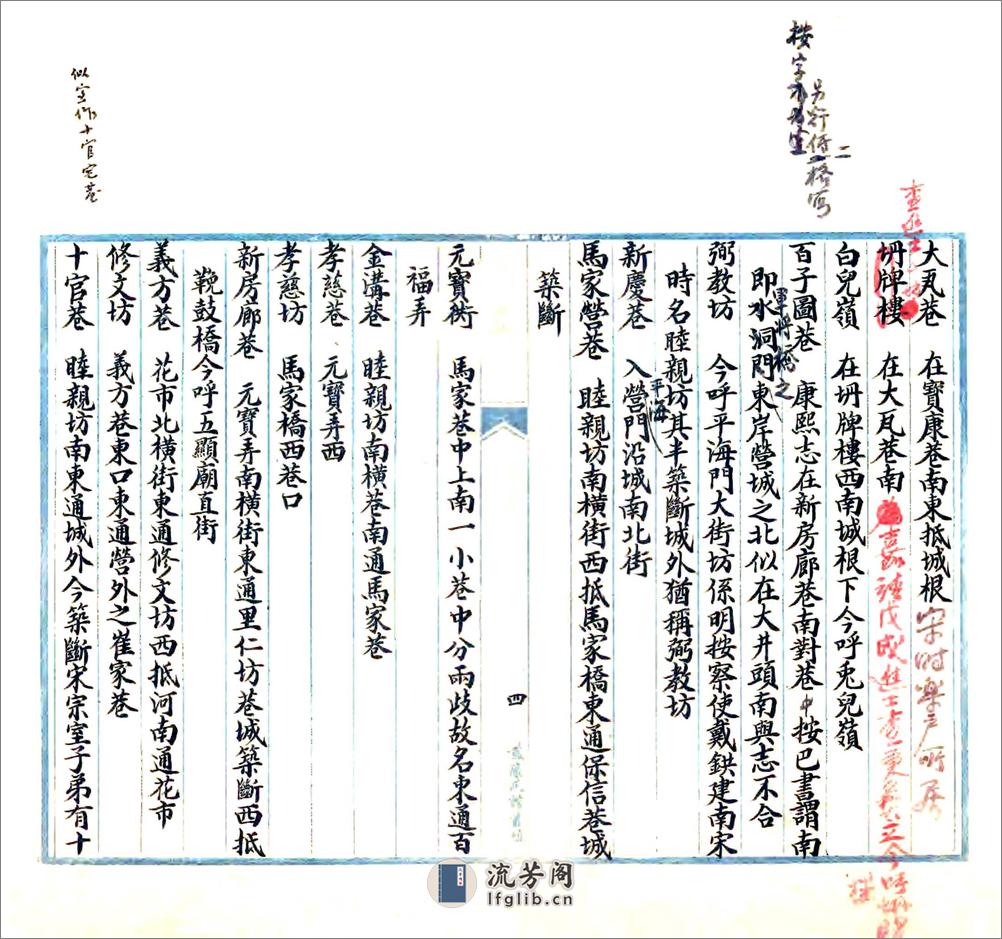 大瓦巷　在寶康巷南東抵城根
宋時樂戶所居
坍牌樓　在大瓦巷南
嘉靖戊戌進士
白兒嶺　在坍牌樓西南城根下今呼兎兒嶺
百子圖巷　康熙志在新房廊巷南對巷中按巴書謂南
即水洞門東岸營城之北似在大井頭南與志不合
軍將橋之
弼教坊　今呼平海門大街坊係明按察使戴鉷建南宋
時名睦親坊其半築斷城外猶稱弼教坊
新慶巷　入營門沿城南北街
平海
馬家營巷　睦親坊南橫街西抵馬家橋東通保信巷城
築斷
四
元寶衖　馬家巷中上南一小巷中分兩歧故名東通百
福弄
金溝巷　睦親坊南橫巷南通馬家巷
孝慈巷　元寶弄西
孝慈坊　馬家橋西巷口
新房廊巷　元寶弄南橫街東通里仁坊巷城築斷西抵
鞔鼓橋今呼五顯廟直街
義方巷　花市北橫街東通修文坊西抵河南通花市
修文坊　義方巷東口東通營外之崔家巷
十官巷　睦親坊南東通城外今築斷宋宗室子弟有十
似宜作十官宅巷
另行低二格寫
流芳阁
lfglib.cn